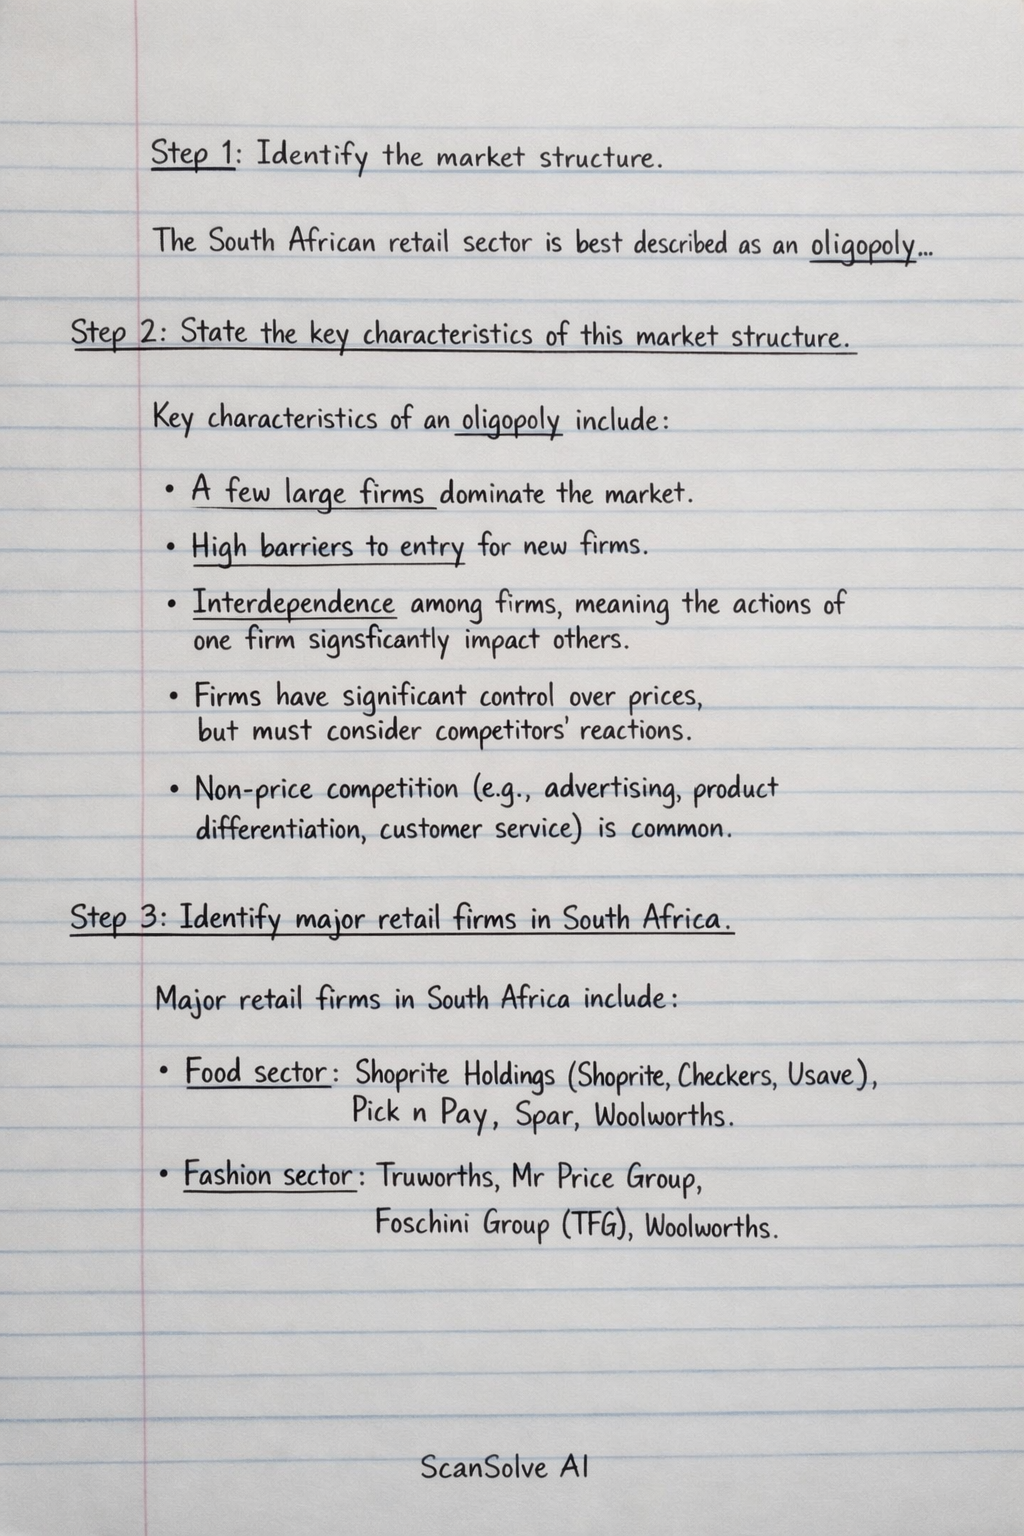 Step 1: Identify the market structure.
The South African retail sector is best described as an oligopoly...
Step 2: State the key characteristics of this market structure.
Key characteristics of an oligopoly include:
• A few large firms dominate the market.
• High barriers to entry for new firms.
• Interdependence among firms, meaning the actions of
one firm signsficantly impact others.
• Firms have significant control over prices,
but must consider competitors' reactions.
• Non-price competition (e.g., advertising, product
differentiation, customer service) is common.
Step 3: Identify major retail firms in South Africa.
Major retail firms in South Africa include:
• Food sector: Shoprite Holdings (Shoprite, Checkers, Usave),
Pick n Pay, Spar, Woolworths.
• Fashion sector: Truworths, Mr Price Group,
Foschini Group (TFG), Woolworths.
ScanSolve AI